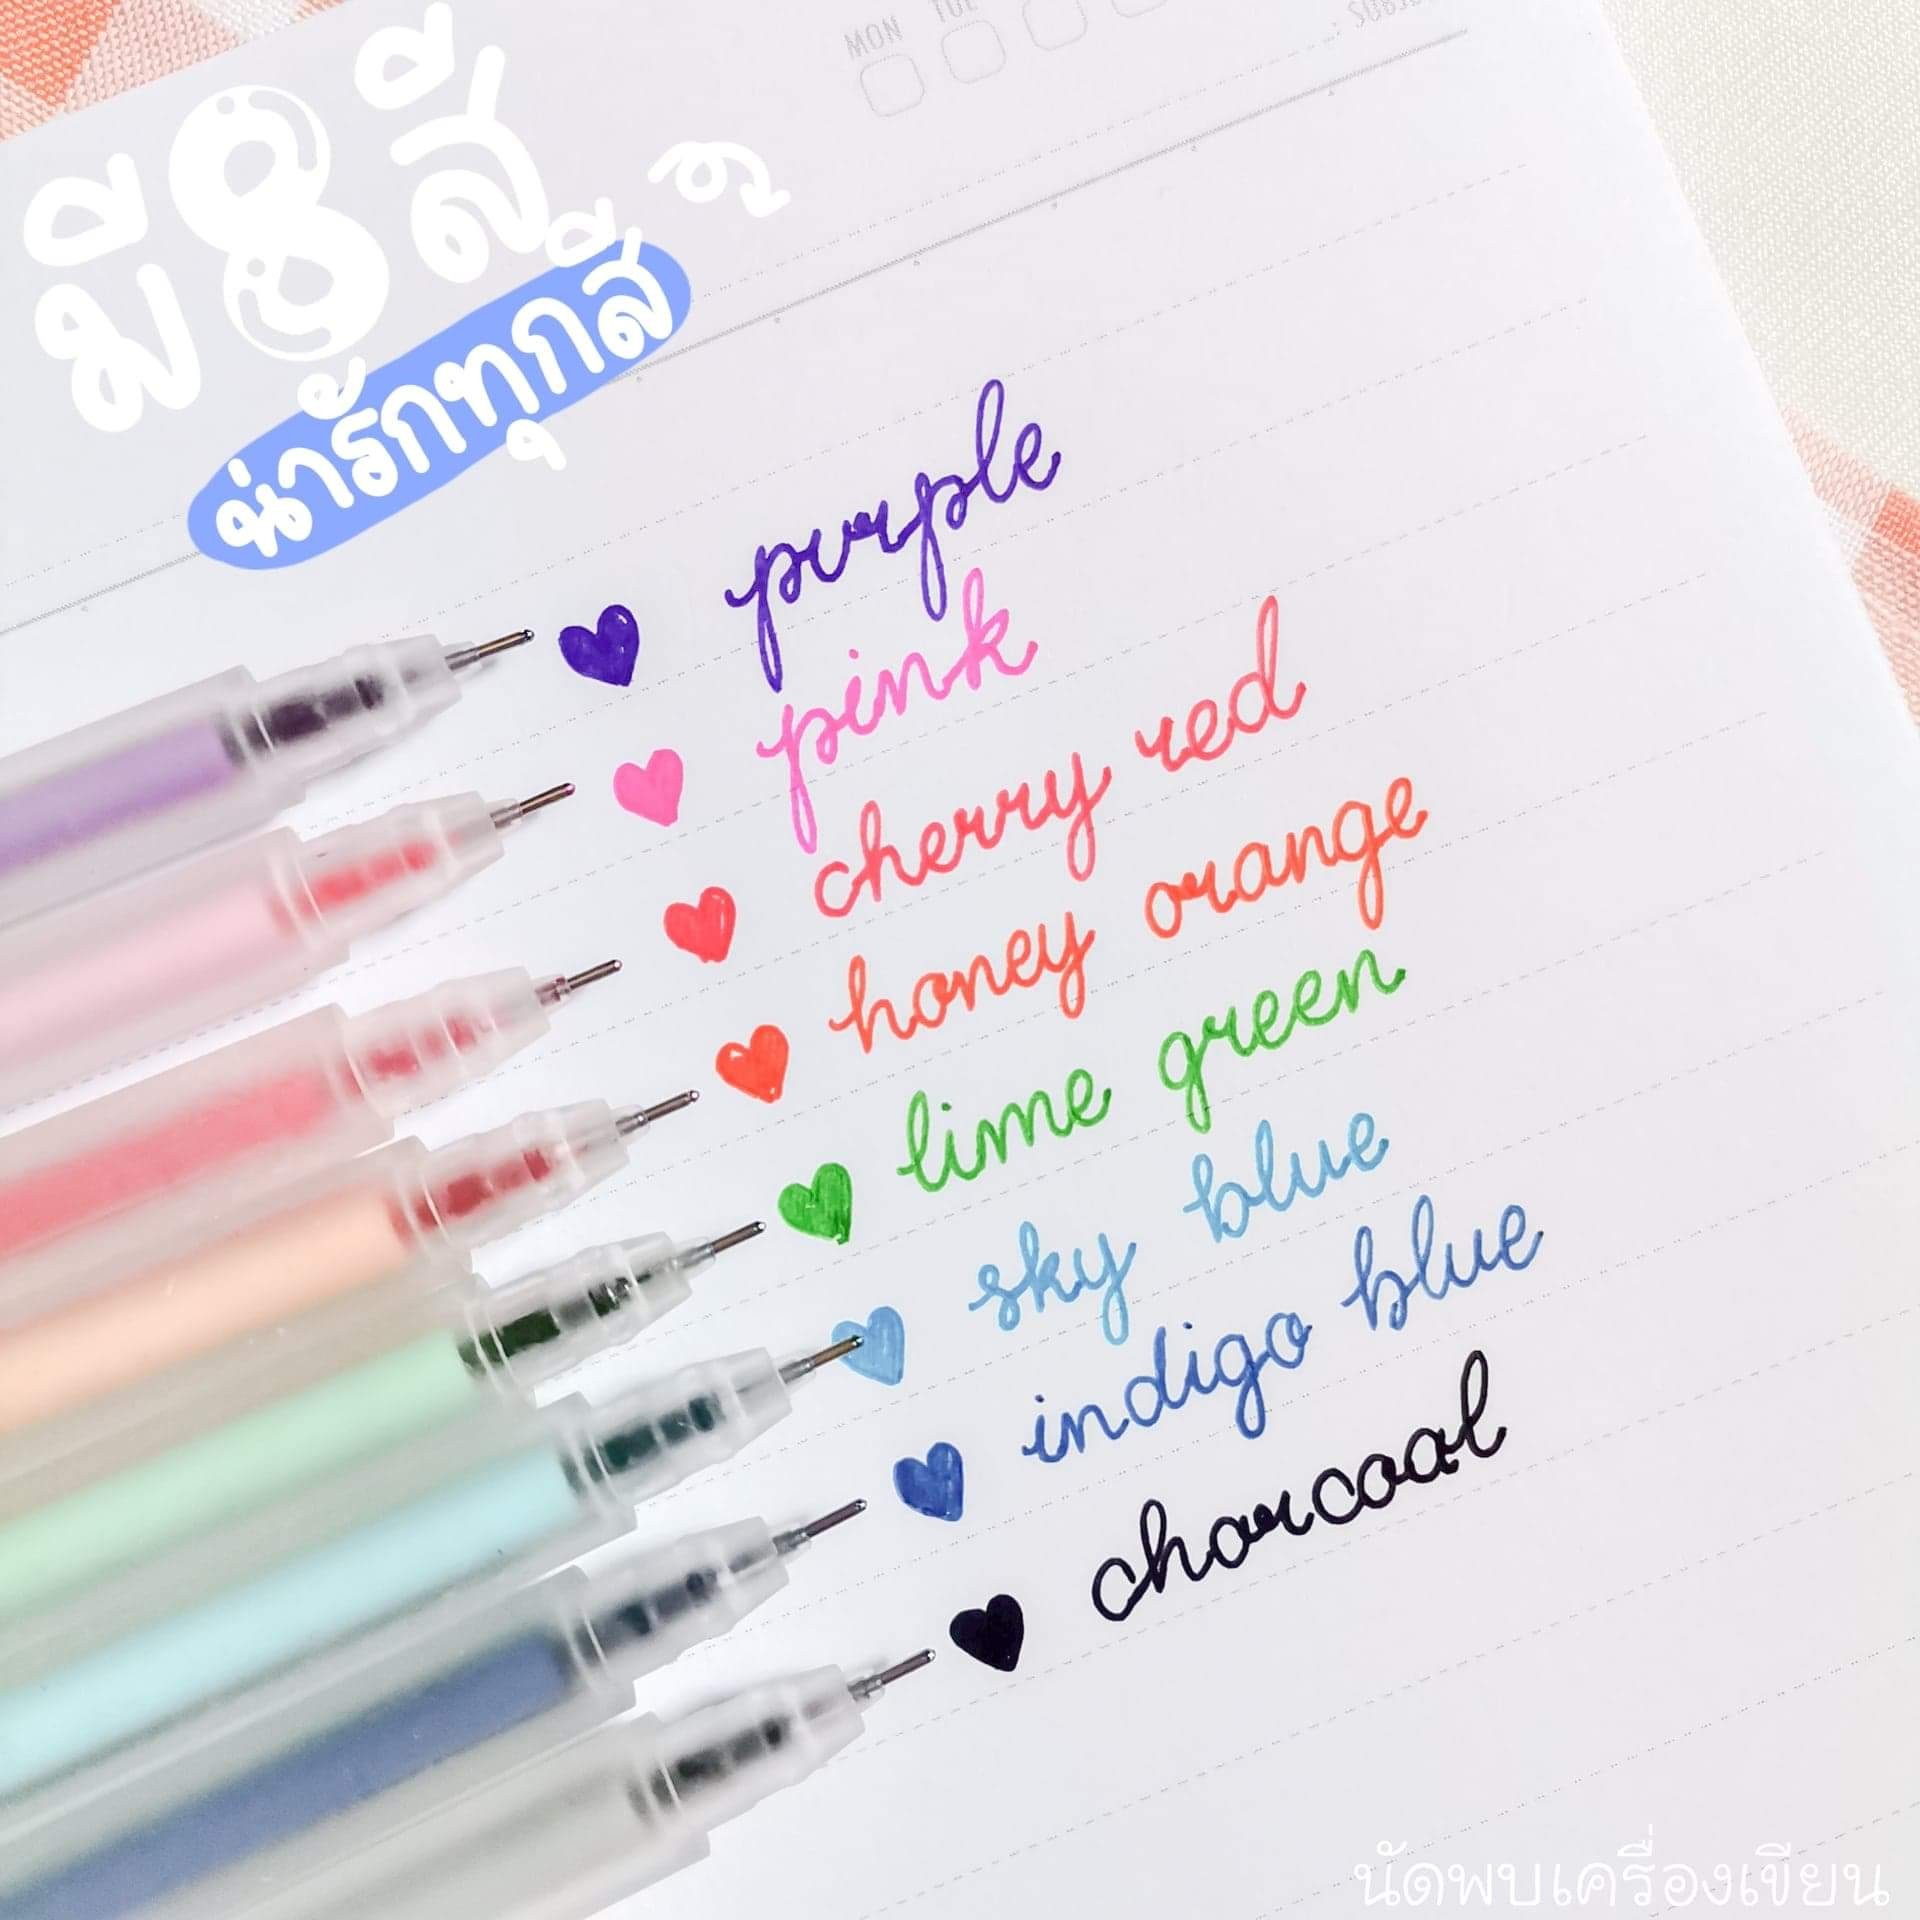 MON TUE
มี 8 สี
น่ารักทุกสี
purple
pink
cherry red
honey orange
lime green
sky blue
indigo blue
charcoal
นัดพบเครื่องเขียน